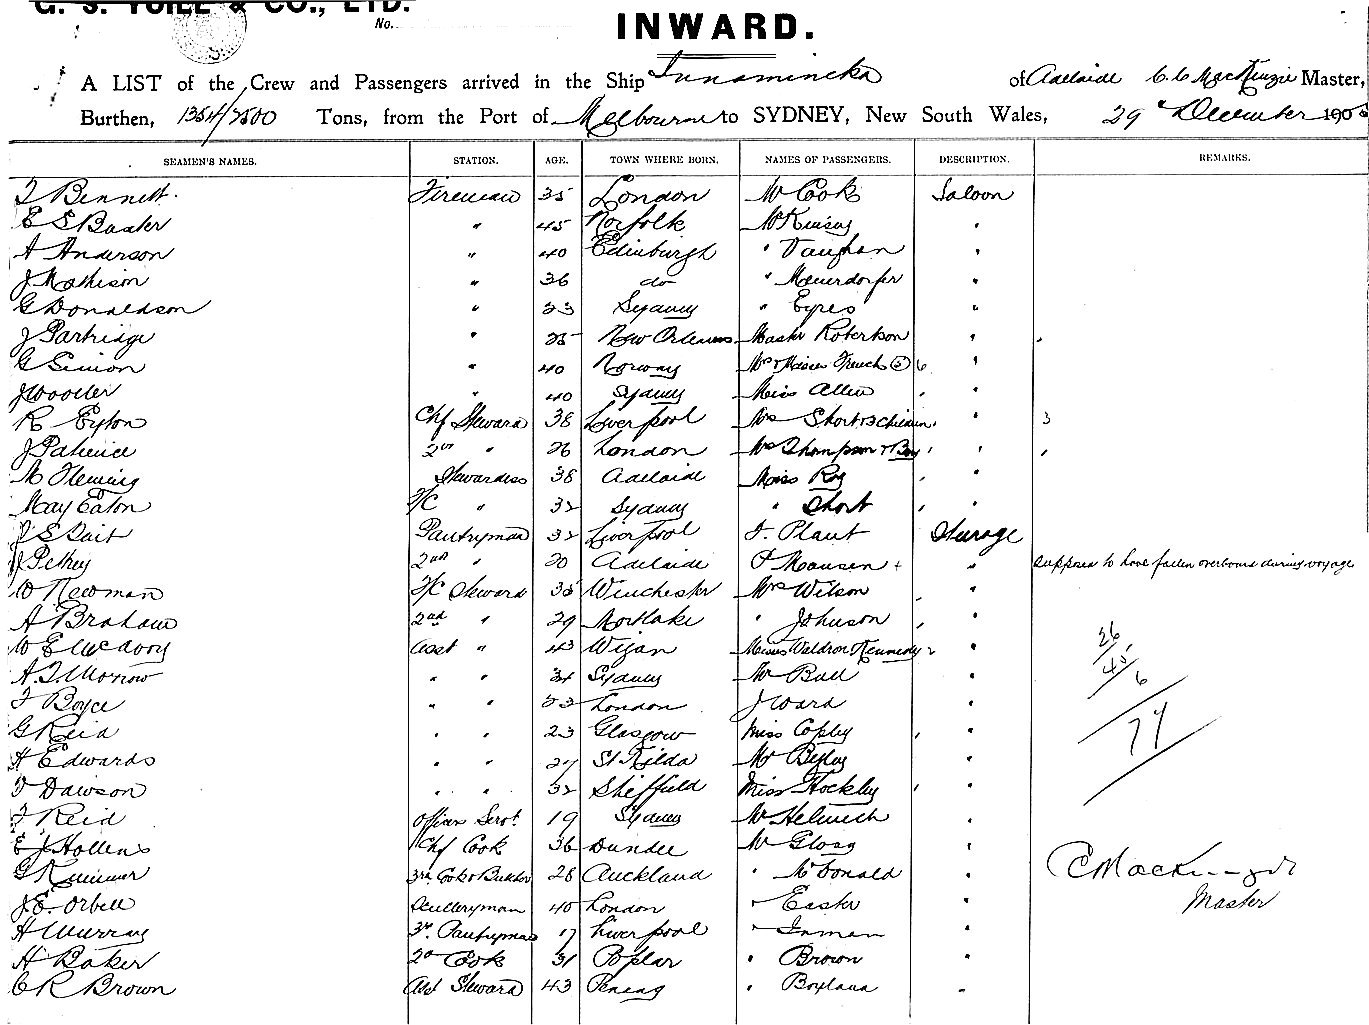 G. S. YUILL & CO., LTD.
No.
INWARD.
A LIST of the Crew and Passengers arrived in the Ship Innamincka of Adelaide C C MacKenzie Master,
Burthen, 1354/2500 Tons, from the Port of Melbourne to SYDNEY, New South Wales, 29 December 190
SEAMEN'S NAMES. STATION. AGE. TOWN WHERE BORN. NAMES OF PASSENGERS. DESCRIPTION. REMARKS.
F Bennett. Fireman 35 London Mr Cook Saloon
E S Baxter " 45 Norfolk Mr "
A Anderson " 40 Edinburgh " Vaughan "
J Mathison " 36 do " "
G Donaldson " 23 Sydney " Eyres "
J Partridge " 25 New Orleans Master Robertson "
G Simon " 40 Norway Mrs & Misses French (5) 6 "
J Wooller " 40 Sydney Miss Allen "
R Eyton Chf Steward 38 Liverpool Mrs Short & 3 children " 3
J Patience 2nd " 26 London Mrs Thompson & Boy "
M Fleming Stewardess 38 Adelaide Miss Roy "
May Eaton F/C " 32 Sydney " Short "
J S Tait Pantryman 32 Liverpool F. Plant Steerage
J Pethey 2nd " 20 Adelaide P Hansen + " Supposed to have fallen overboard during voyage
W Newman F/C Steward 35 Winchester Mrs Wilson "
A Braham 2nd " 29 Mortlake " Johnson "
W E McAvoy Asst " 43 Wigan Misses Waldron & Kennedy 2 "
A T Morrow " " 34 Sydney Mr Ball "
F Boyce " " 22 London J Ward "
G Reid " " 23 Glasgow Miss Copley "
H Edwards " " 27 St Kilda Mr "
F Dawson " " 32 Sheffield Miss Hockley "
F Reid Officers Servt 19 Sydney Mr "
E J Hollens Chf Cook 36 Dundee Mr Glosg "
G 3rd Cook & Butcher 28 Auckland " McDonald "
J. E. Orbell Sculleryman 40 London " Easter "
H Murray 3rd Pantryman 17 Liverpool " Inman "
H Baker 2nd Cook 31 Poplar " Brown "
C R Brown Asst Steward 43 Penang " Boyland "
26
45
6
77
C MacKenzie
Master